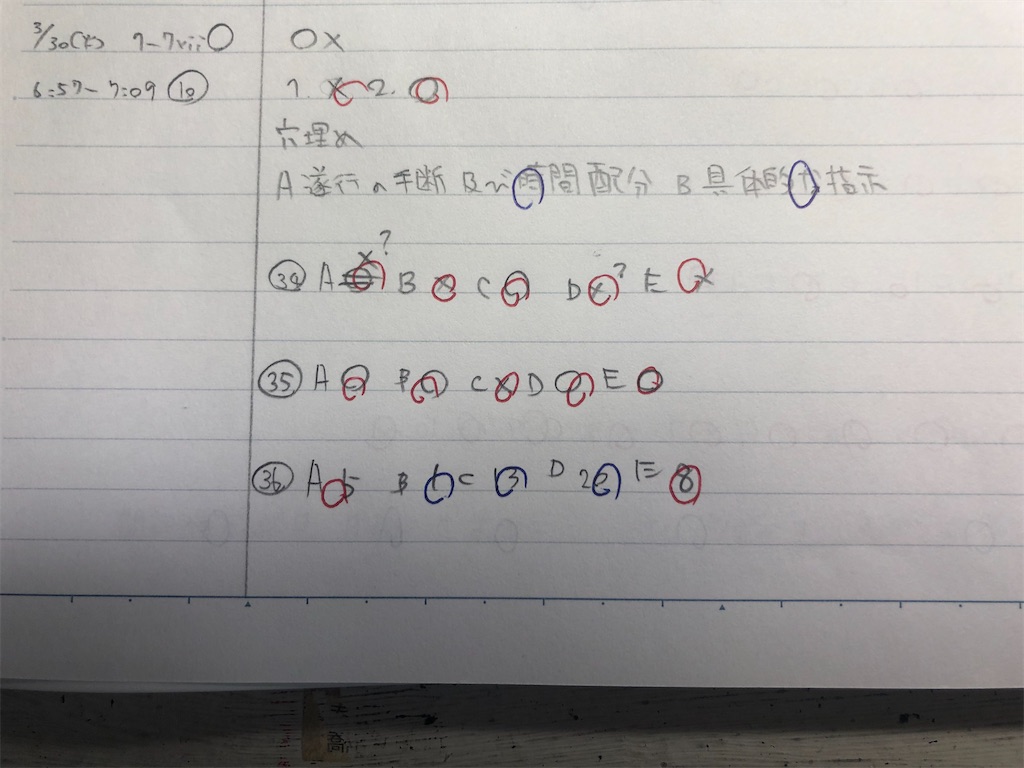 3/30(木) 7-7vii ○ ○×
6:57-7:09 ⑫ 1. × 2. ○
穴埋め
A 遂行の手断及び時間配分 B 具体的な指示
㉞ A ×? B × C ○ D ×? E ×
㉟ A ○ B ○ C × D ○ E ○
㊱ A 5 B 1 C 13 D 2 E 8